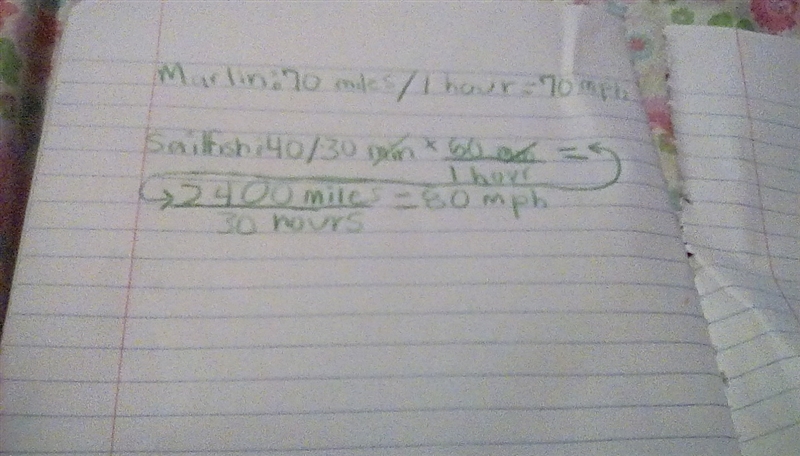 Marlin: 70 miles/1 hour = 70 mph
Sailfish: 40/30 min × 60 min / 1 hour =
2400 miles / 30 hours = 80 mph